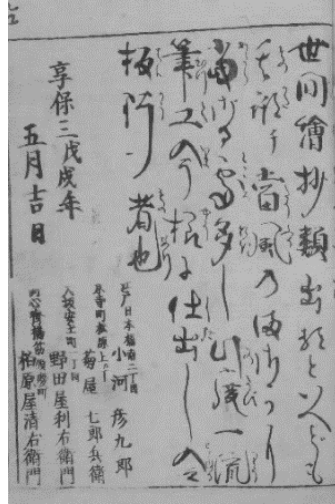 世间繪抄類出ると人へども
其形チ當風の
事多し此度一流
筆工今様に仕出し令
板行者也
享保三戊戌年
五月吉日
江戸日本橋南二丁目
小河彦九郎
京寺町上ル丁
菊屋七郎兵衛
大坂安土町一丁目
野田屋利右衛門
同心斎橋筋順慶町
柏原屋清右衛門